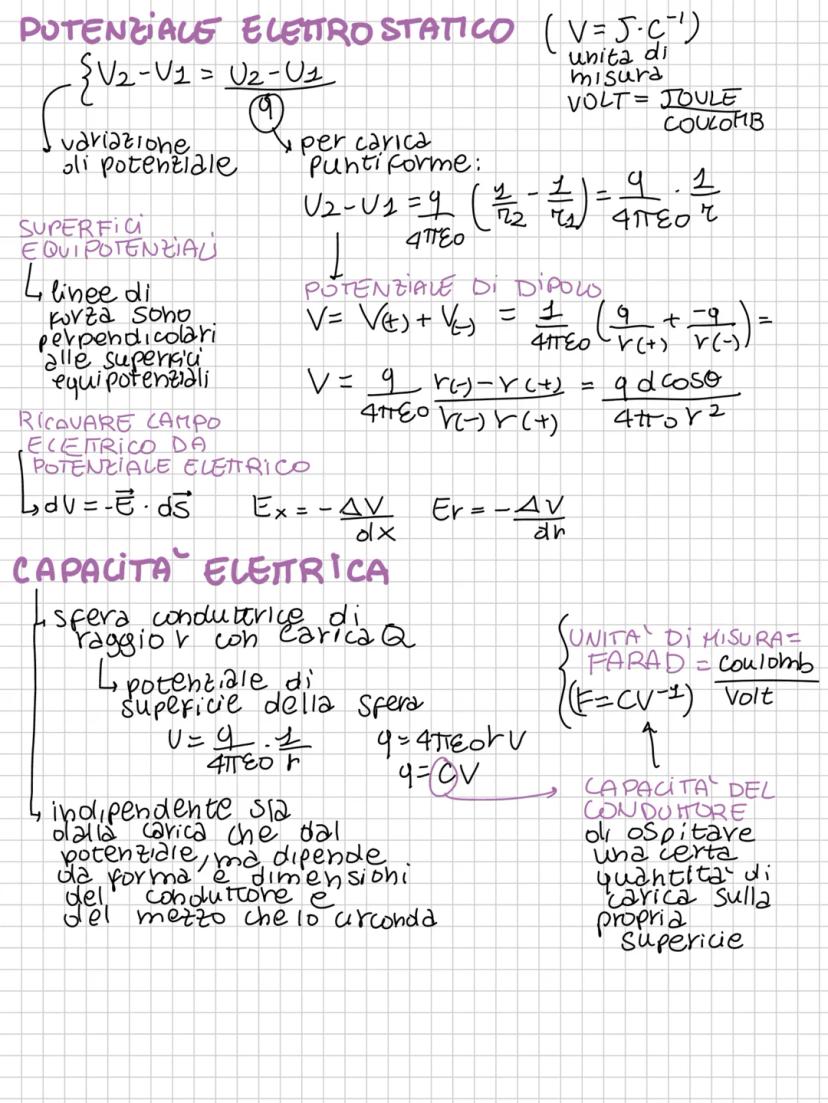 POTENZIALE ELETTROSTATICO
(V = J·C⁻¹)
unita di
misura
VOLT = JOULE / COULOMB
{V2-V1 = U2-U1 / q
variazione
di potenziale
per carica
puntiforme:
U2-U1 = q / 4πε0 (1/r2 - 1/r1) = q / 4πε0 · 1/r
SUPERFICI
EQUIPOTENZIALI
linee di
forza sono
perpendicolari
alle superfici
equipotenziali
POTENZIALE DI DIPOLO
V = V(+) + V(-) = 1 / 4πε0 (q / r(+) + -q / r(-)) =
V = q / 4πε0 r(-) - r(+) / r(-) r(+) = q d cosθ / 4π0 r²
RICAVARE CAMPO
ELETTRICO DA
POTENZIALE ELETTRICO
dV = -E⃗ · ds⃗ Ex = - ΔV / dx Er = - ΔV / dr
CAPACITA` ELETTRICA
sfera conduttrice di
raggio r con carica Q
potenziale di
superficie della sfera
U = q / 4πε0 · 1/r q = 4πε0rV
q = CV
indipendente sia
dalla carica che dal
potenziale, ma dipende
da forma e dimensioni
del conduttore e
del mezzo che lo circonda
UNITA` DI MISURA =
FARAD = coulomb / Volt
(F = CV⁻¹)
CAPACITA` DEL
CONDUTTORE
di ospitare
una certa
quantita` di
carica sulla
propria
supericie